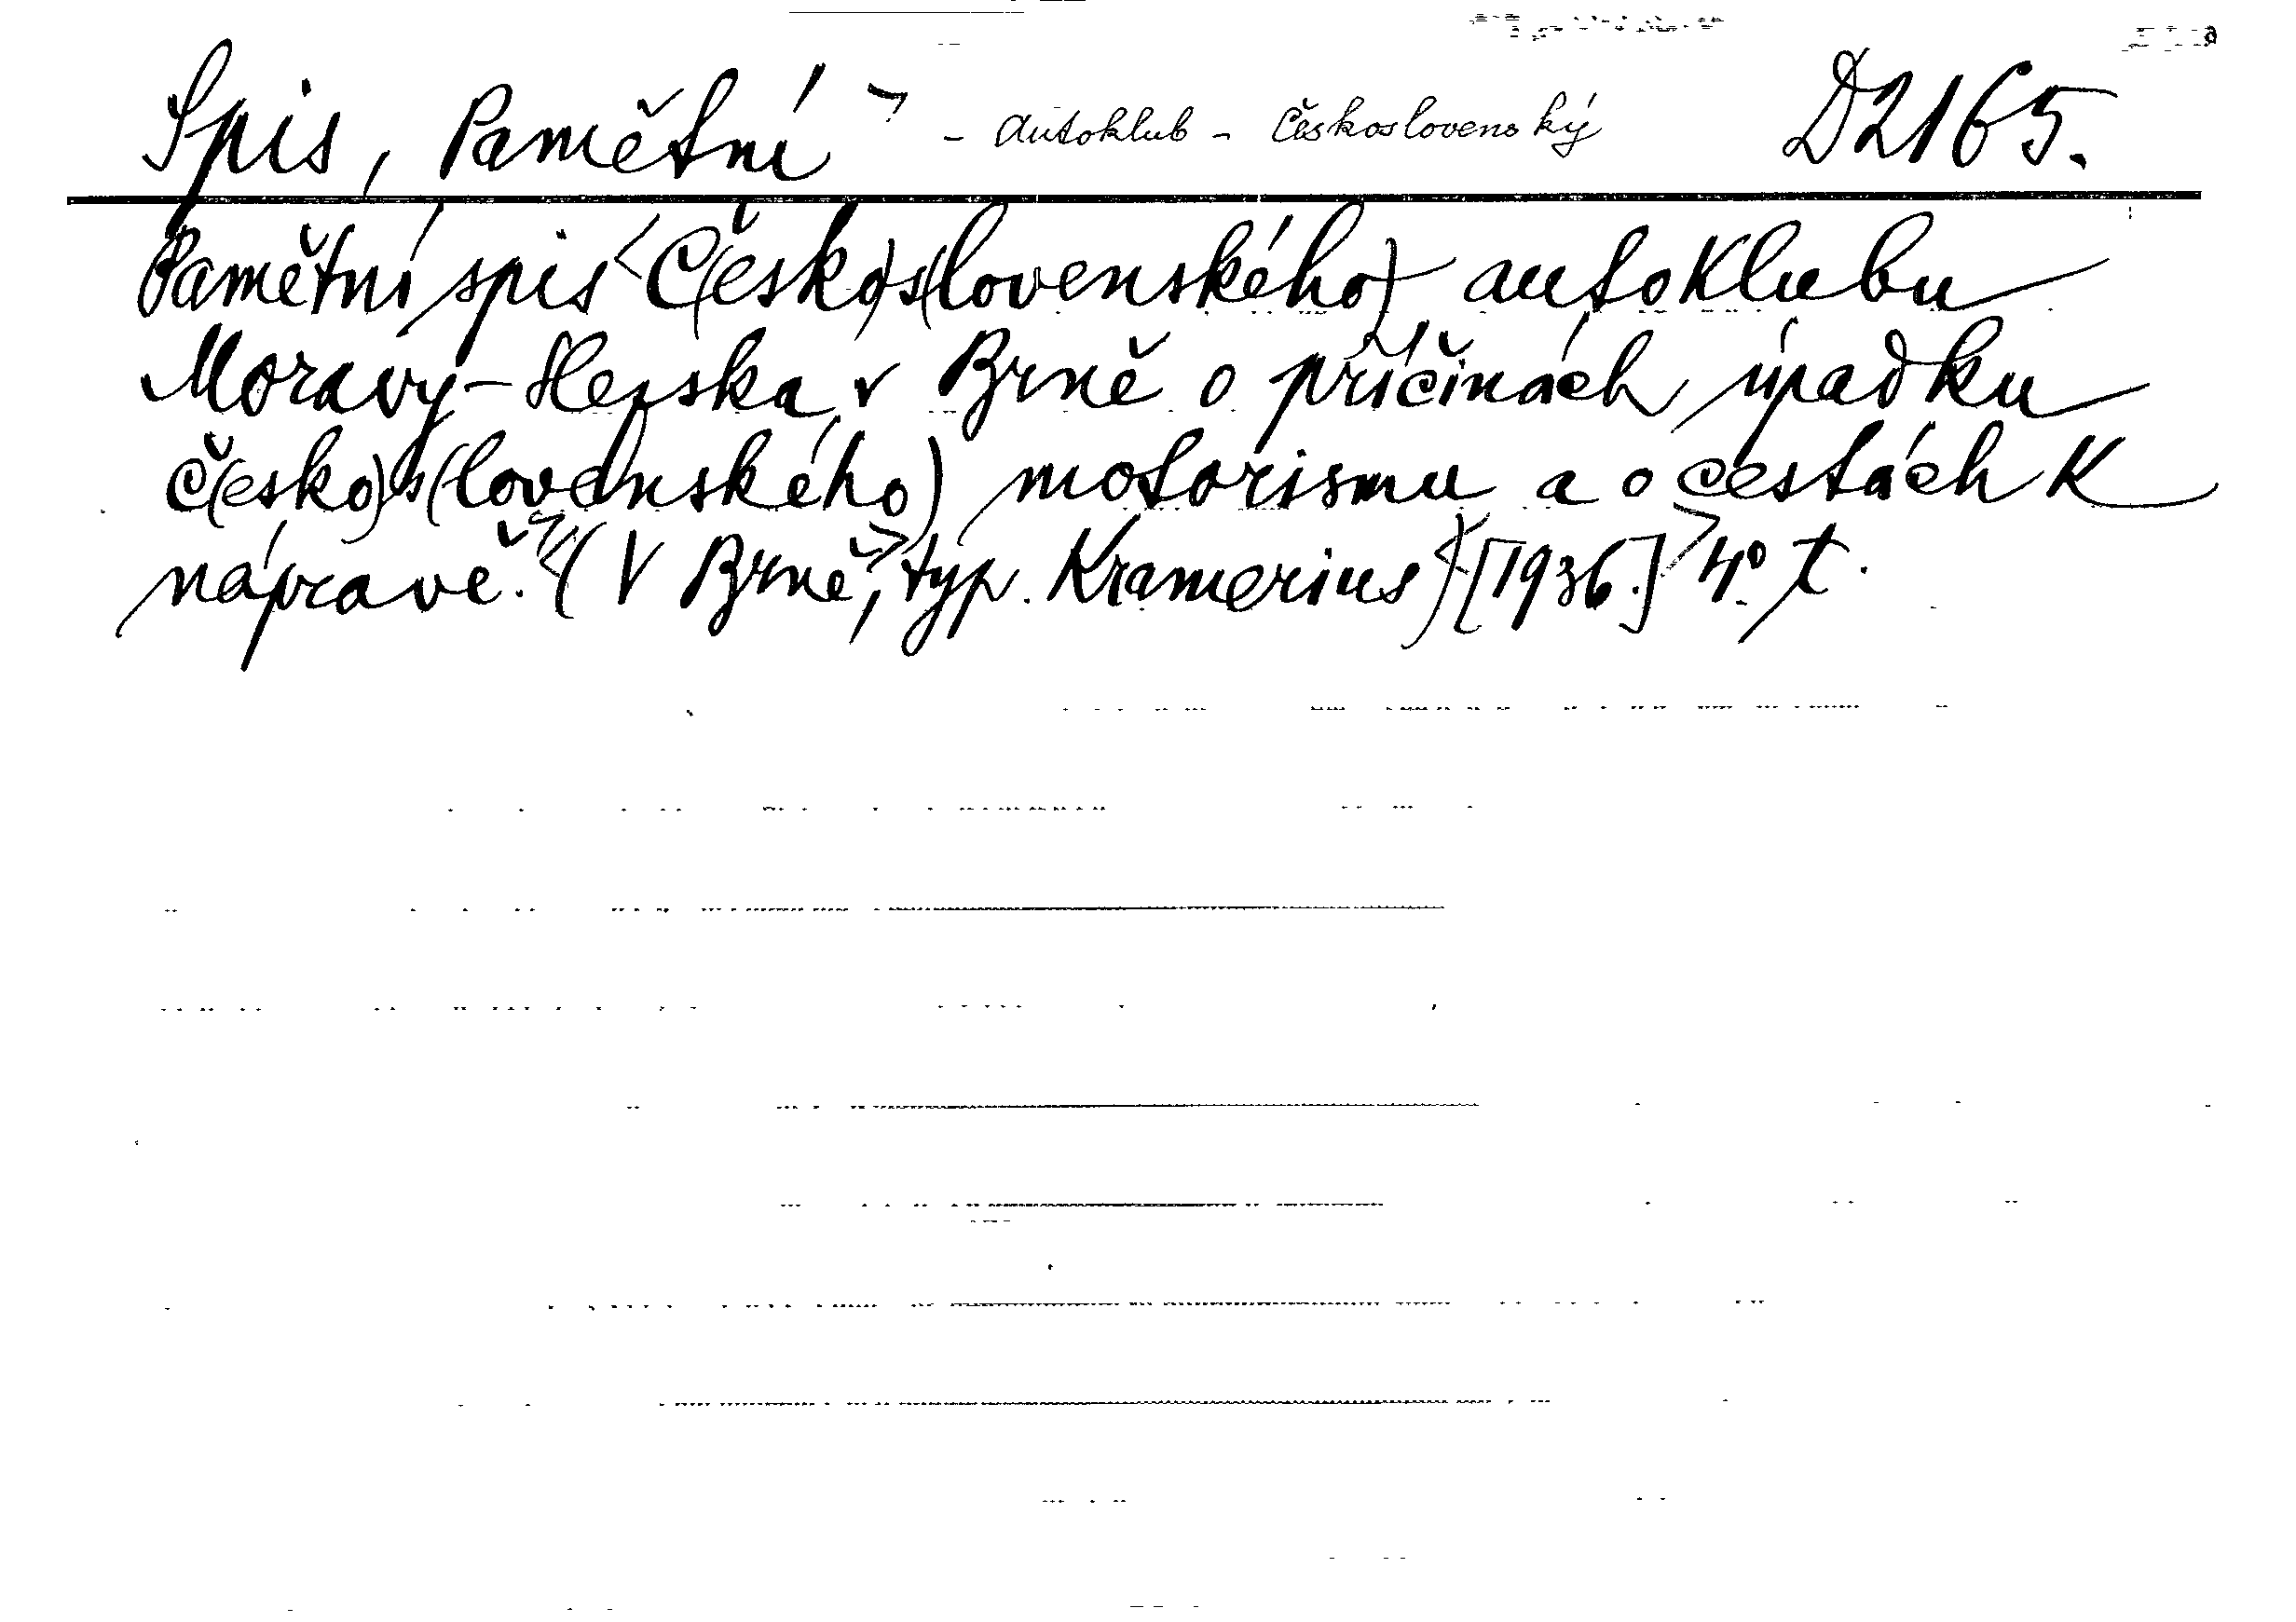 Spis, Pamětní - Autoklub - Československý D2165.
Pamětní spis Č(esko)s(lovenského) autoklubu
Moravy-Slezska v Brně o příčinách úpadku
č(esko)s(lovenského) motorismu a o cestách k
nápravě. (V Brně, typ. Kramerius) [1936.] 4° t.